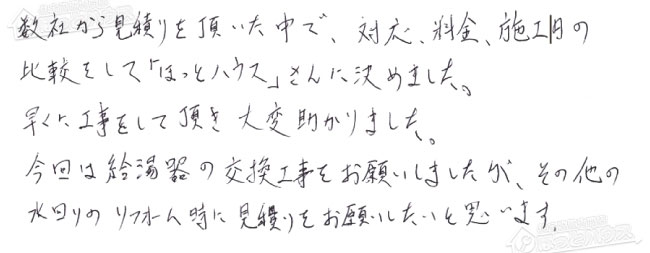 数社から見積りを頂いた中で、対応、料金、施工日の
比較をして「ほっとハウス」さんに決めました。
早くに工事をして頂き大変助かりました。
今回は給湯器の交換工事をお願いしましたが、その他の
水回りのリフォーム時に見積りをお願いしたいと思います。